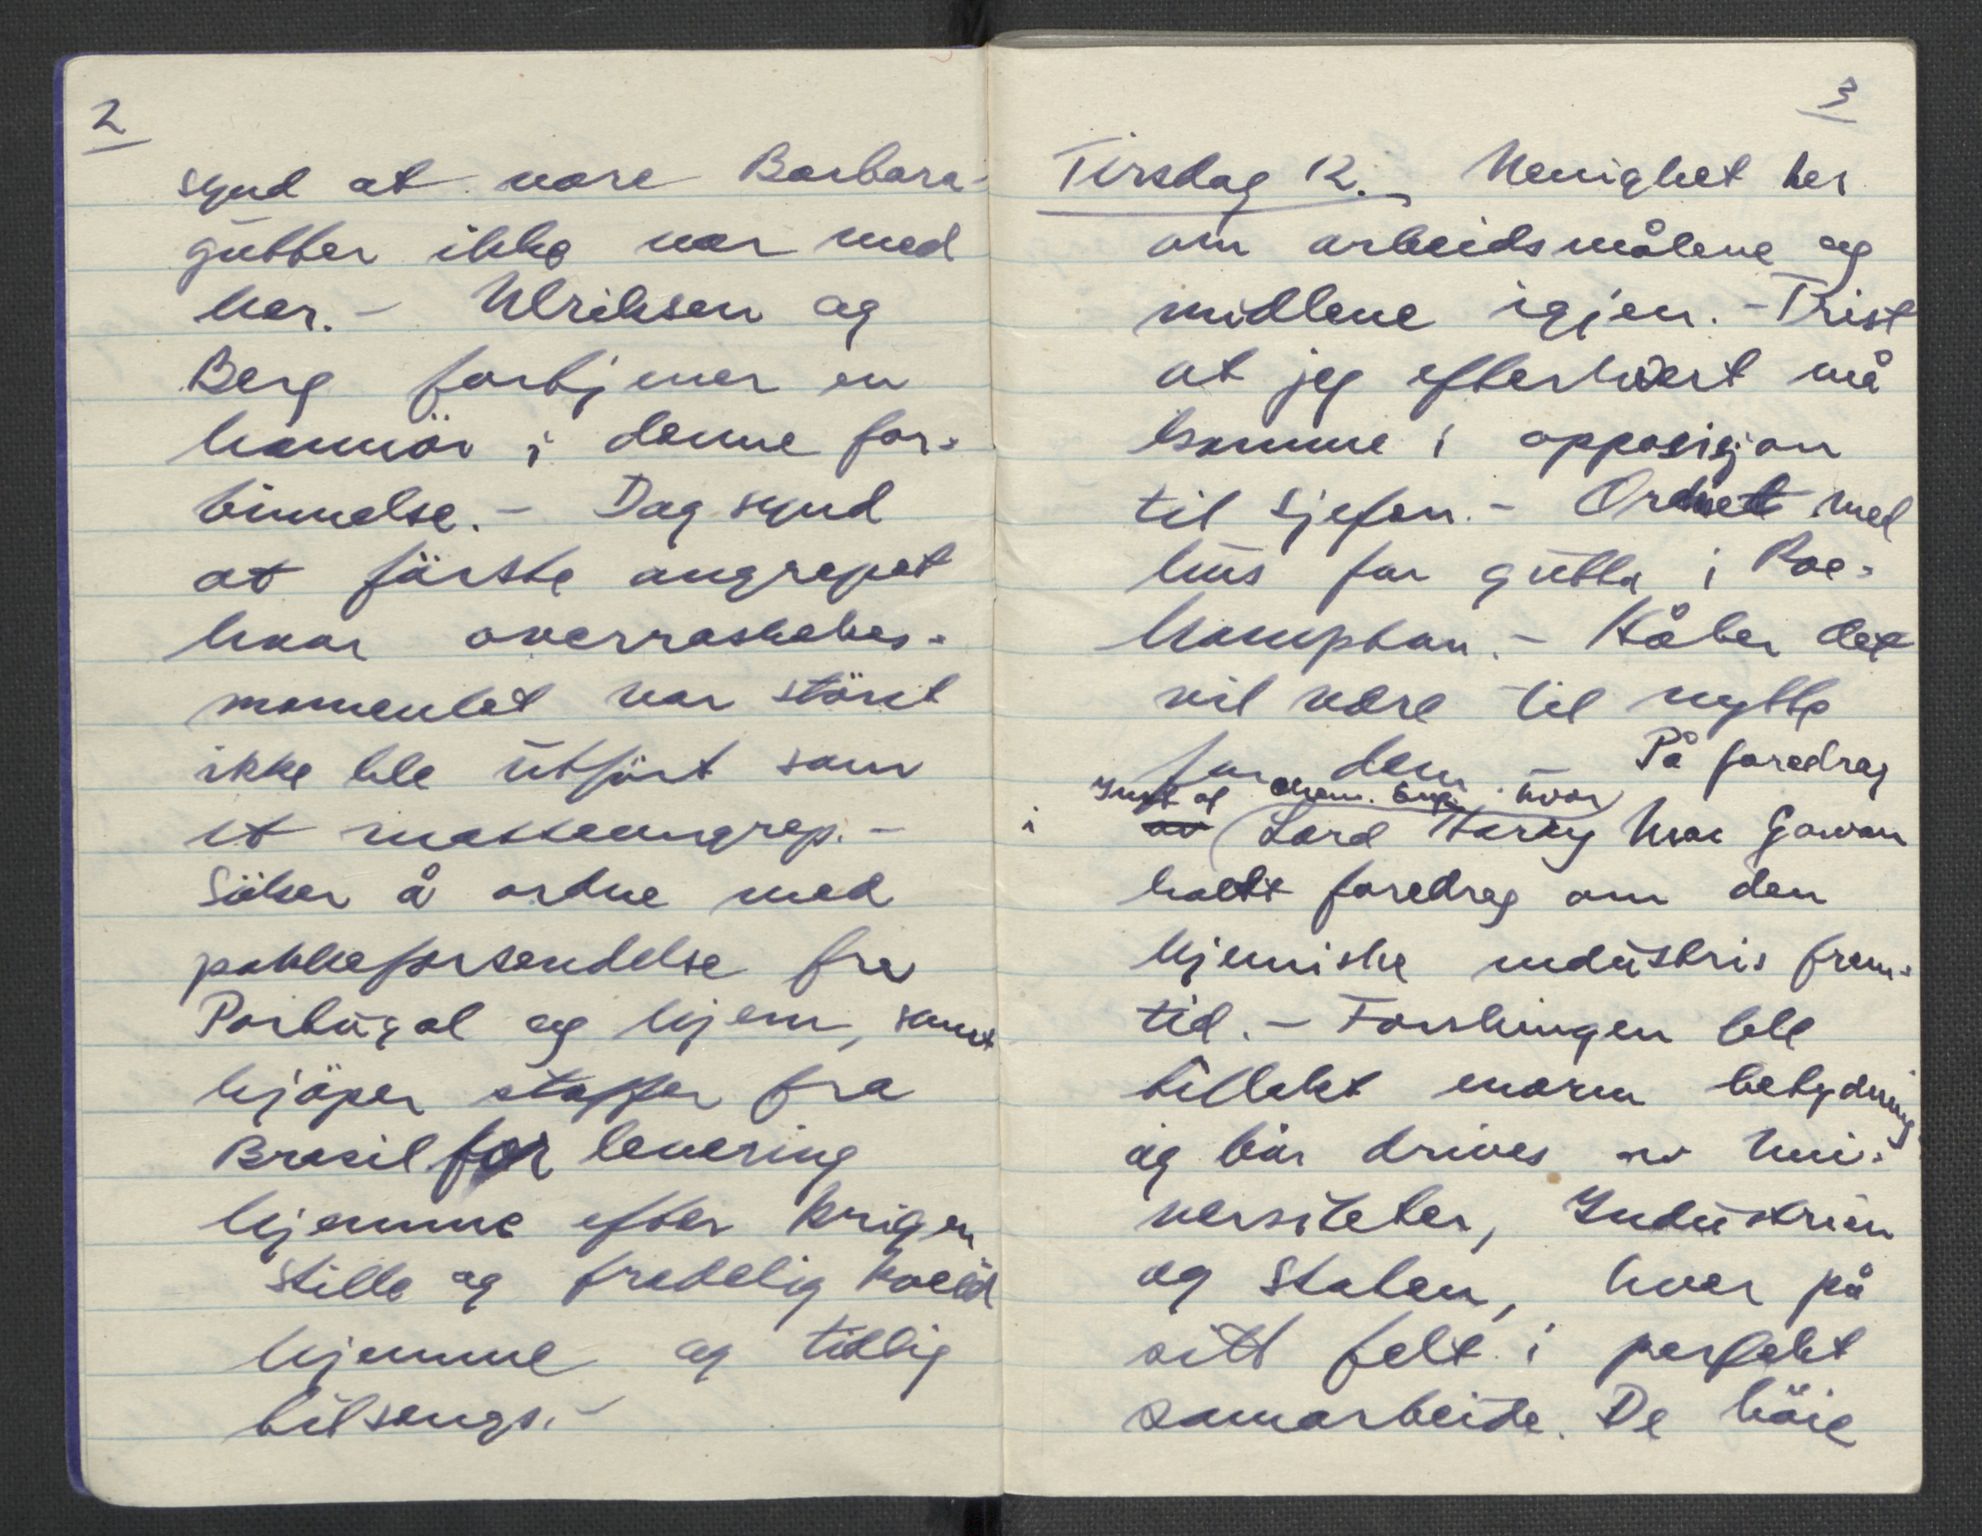 2
synd at våre Barbara-
gutter ikke var med
her. - Ulriksen og
Berg fortjener en
honnör i denne for-
binnelse. - Dog synd
at förste angrepet
hvor overraskelses-
momentet var störst
ikke ble utfört som
et masseangrep. -
Söker å ordne med
pakkeforsendelse fra
Portugal og hjem, samt
kjöper stoffer fra
Brasil for levering
hjemme efter krigen
Stille og fredelig kveld
hjemme og tidlig
tilsengs. -
3
Tirsdag 12. Uenighet her
om arbeidsmålene og
midlene igjen. - Trist
at jeg efterhvert må
komme i opposisjon
til Sjefen. - Ordnett med
hus for gutta i Roe-
hampton. - Håber det
vil være til nytte
for dem. - På foredrag
i Inst of Chem. Eng. hvor
av Lord Harry Mac Gowan
holdt foredrag om den
kjemiske industris frem-
tid. - Forskningen ble
tillakt enorm betydning
og bör drives av Uni-
versiteter, Industrien
og Staten, hver på
sitt felt i perfekt
samarbeide. De höie